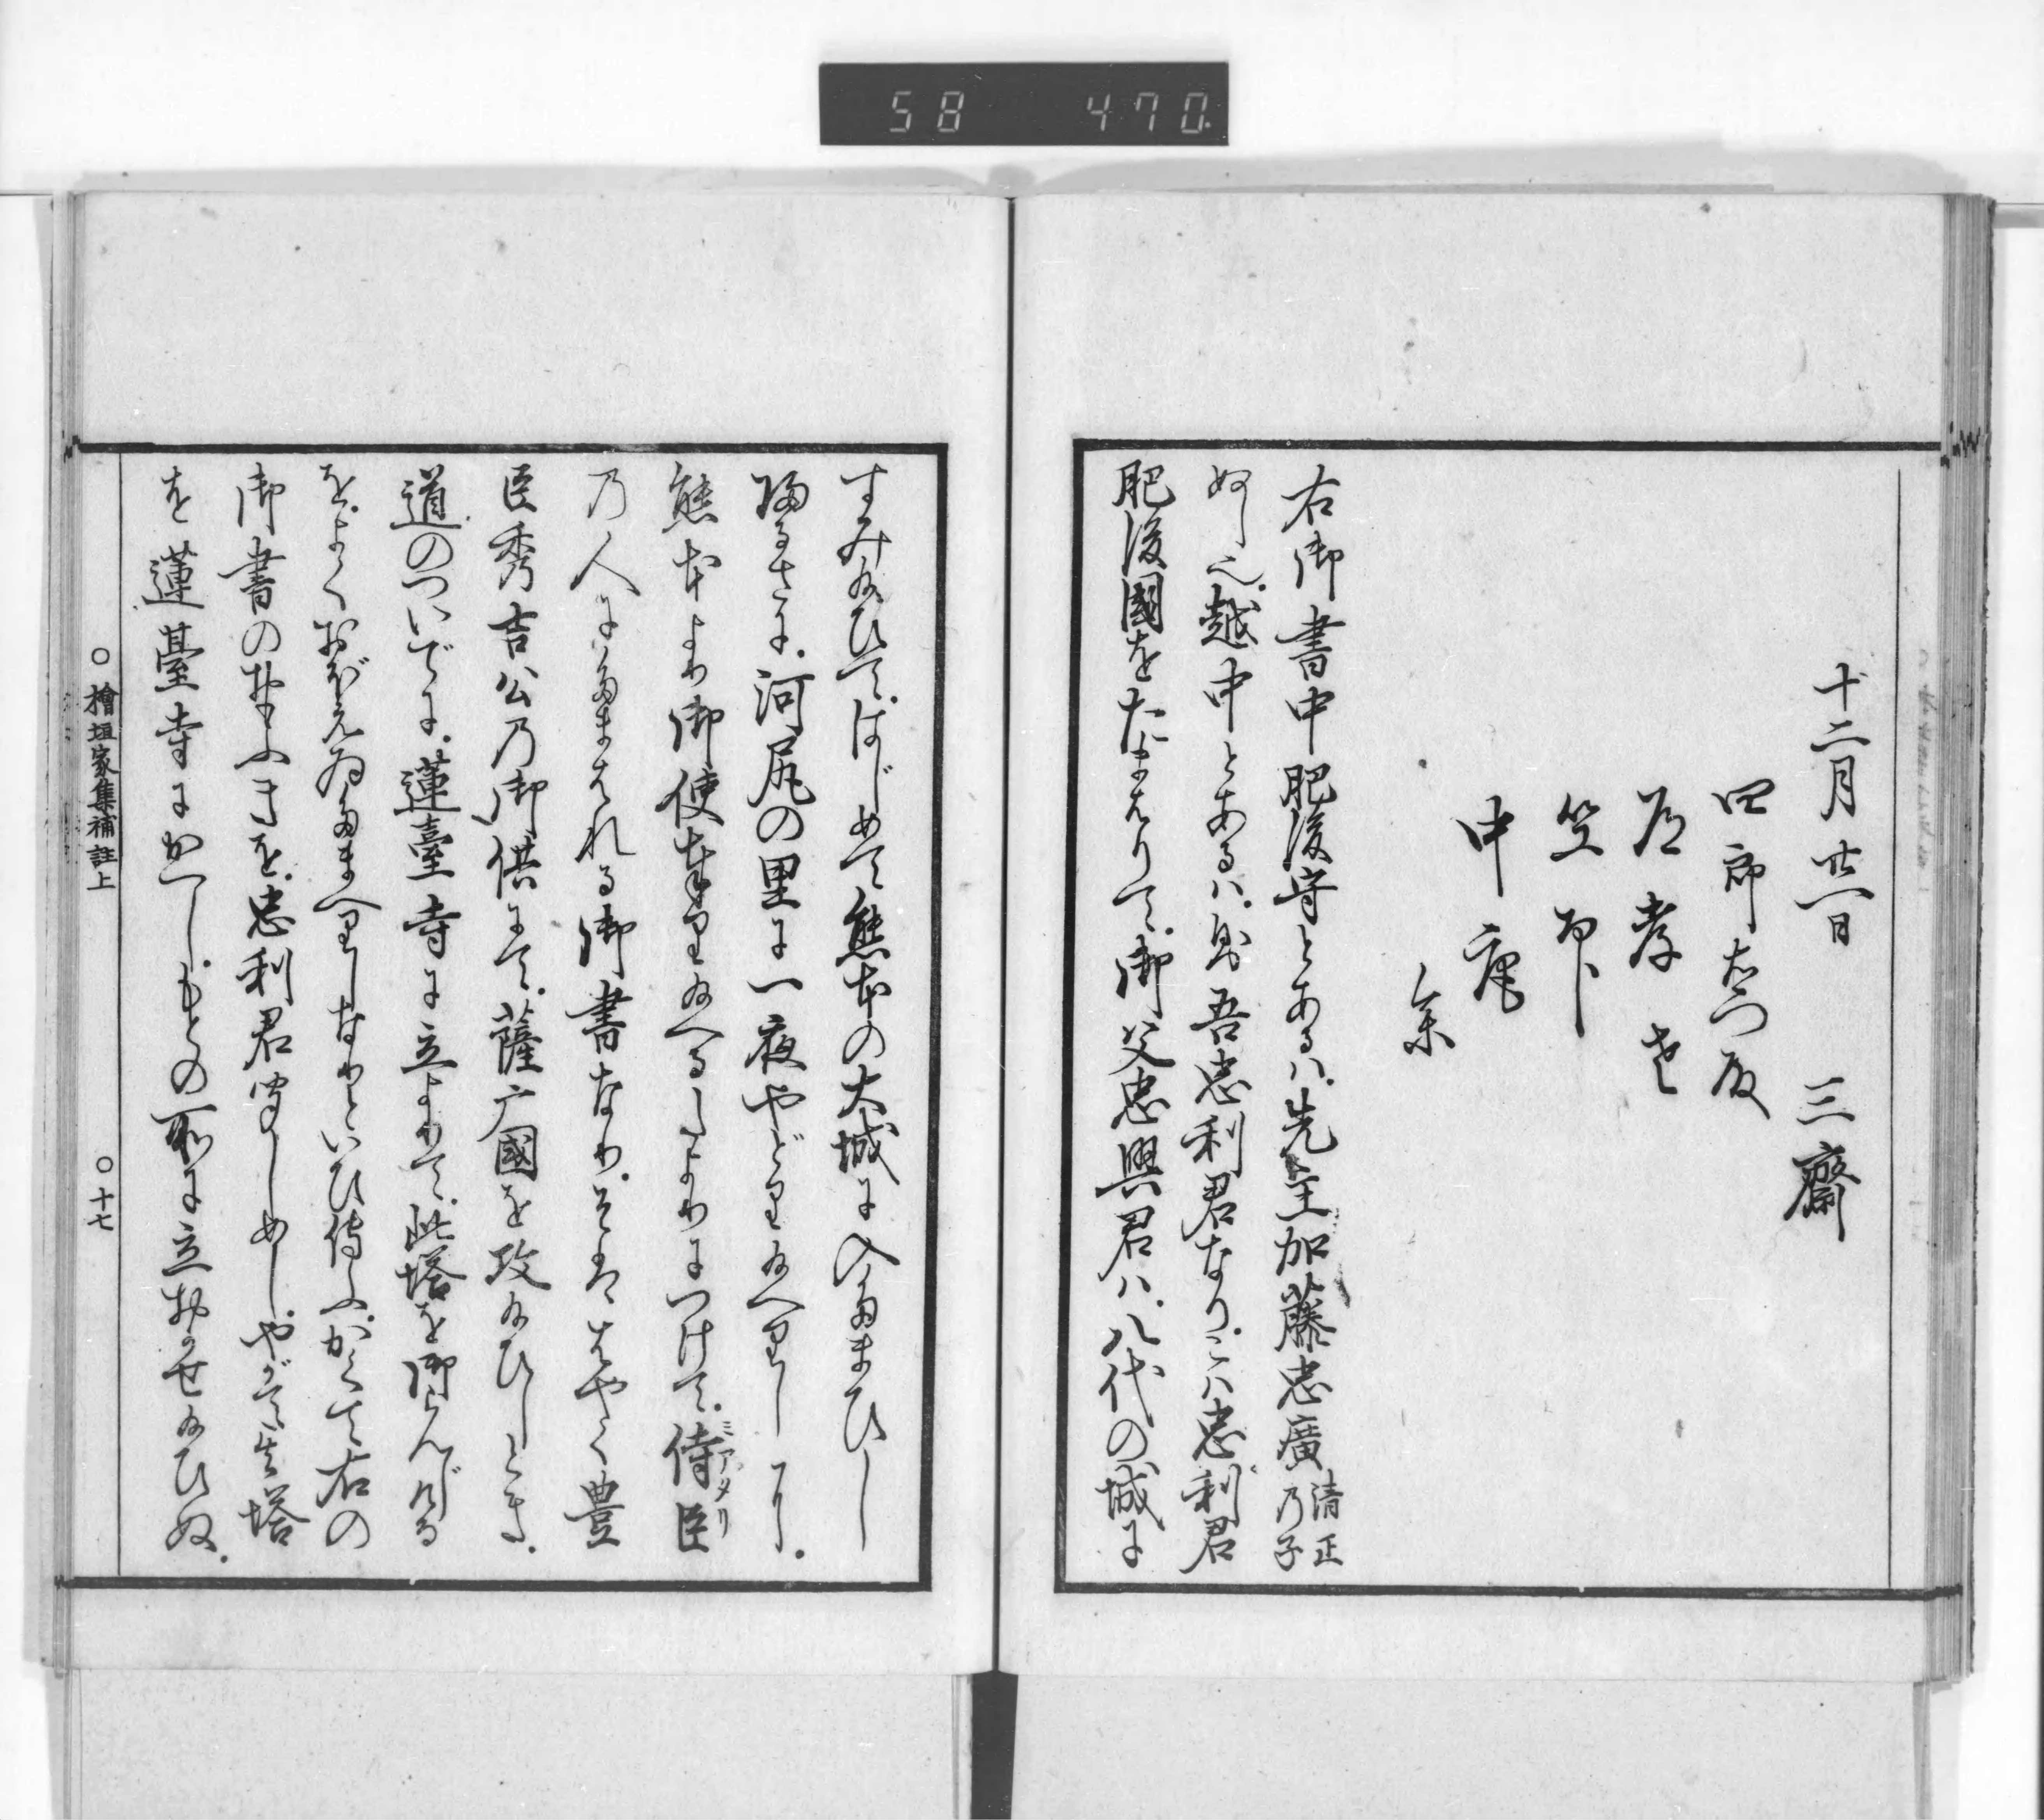 58 470
十二月廿一日 三齋
四郎右衛門殿
笠
中庵
右御書中肥後守とあるハ先主加藤忠廣 清正乃子
ぬし也越中とあるハ則吾忠利君なりこハ忠利君
肥後國をたまはりて御父忠興君ハ八代の城に
すみ給ひてはじめて熊本の大城に入たまひし
帰るさに河尻の里に一夜やどり給へりしに
熊本より御使奉り給へるたよりにつけて侍臣 ミアタリ
乃人にたまはれる御書なりそははやく豊
臣秀吉公乃御供にて薩广國を攻給ひしとき
道のついでに蓮臺寺に立よりて此塔を御らんじける
をよくおぼえゐたまへりしなりといひ傳ふかくて右の
御書のおもふきを忠利君聞しめしやがて其塔
を蓮臺寺にかへしもとの所に立おかせ給ひぬ
○檜垣家集補註上 ○十七